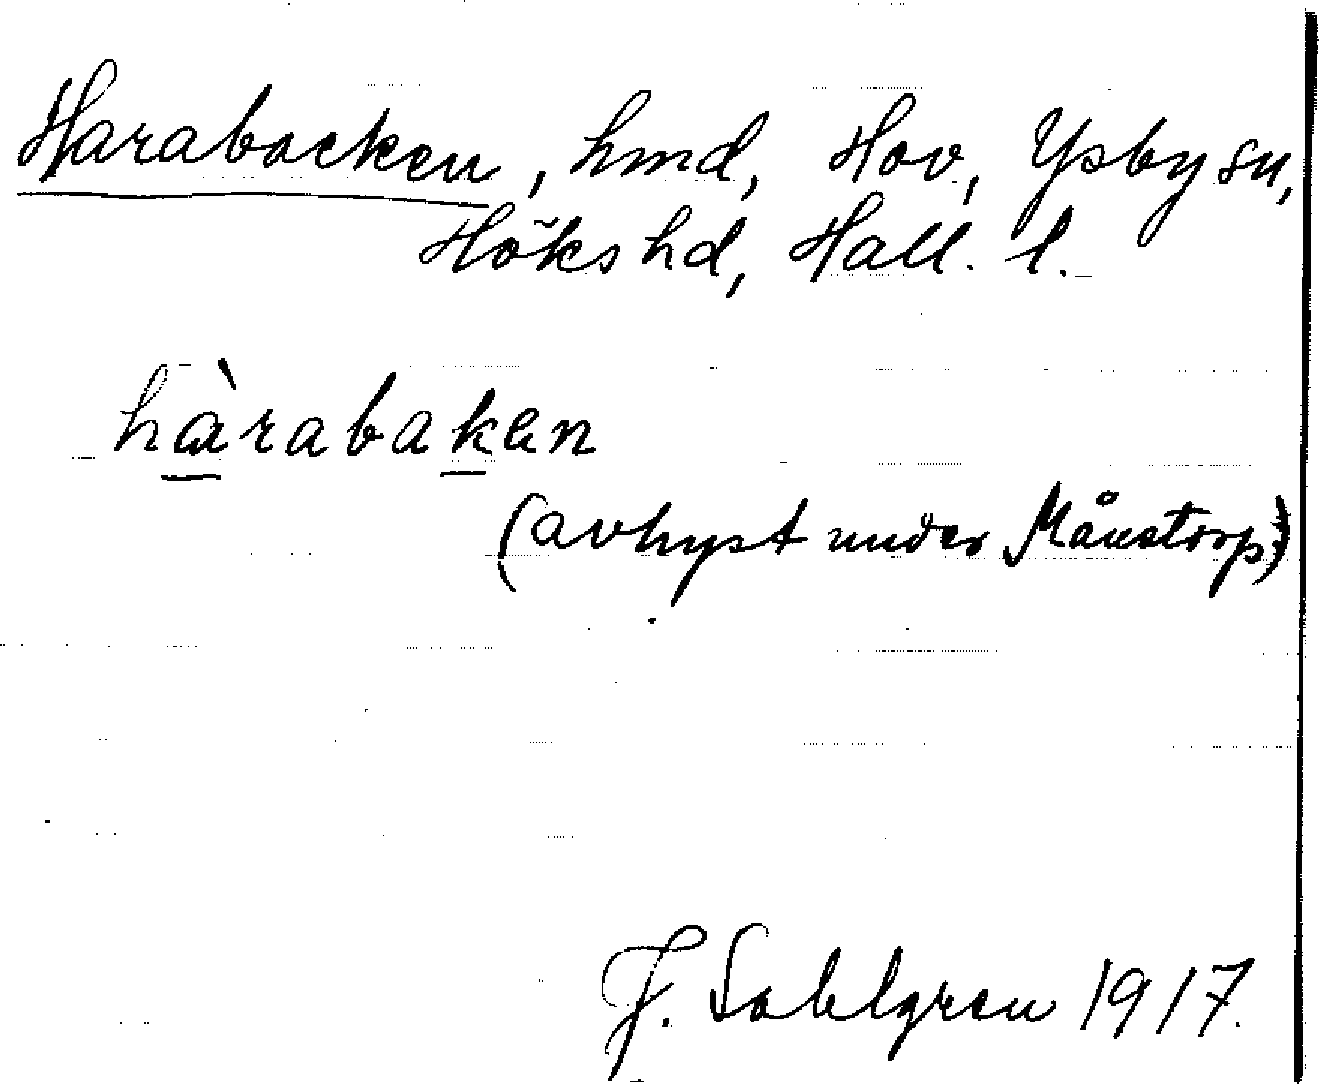 Harabacken, hmd, Hov, Ysby sn,
Höks hd, Hall. l.
hàrabaken
(avhyst under Månstorp)
J. Sahlgren 1917.